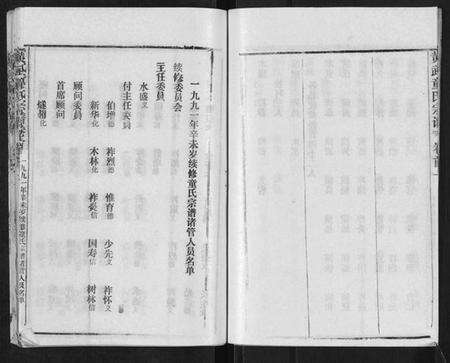 一九九一年辛未岁续修童氏宗谱诸管人员名单
续修委员会
主任委员
水盛义
付主任委员
伯增德 祚烈德 惟育德 少先义 祚怀义
新华化 木林化 祚奚信 国寿信 树林信
顾问委员
首席顾问
燧翘化
一九九一年辛未岁续修童氏宗谱诸管人员名单
黄武童氏宗谱 卷首一